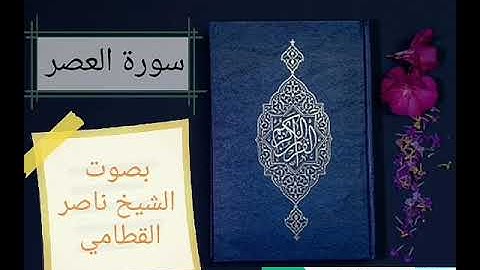 سورة العصر
القرآن الكريم
بصوت
الشيخ ناصر
القطامي